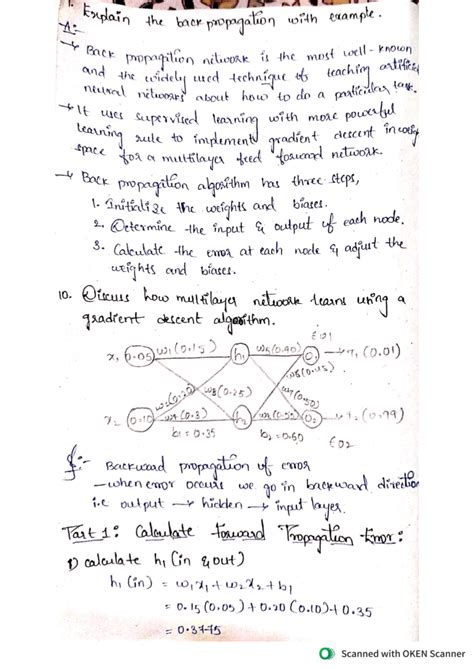 1. Explain the back propagation with example.
A:-
→ Back propagition network is the most well-known
and the widely used technique of teaching artificial
neural networks about how to do a particular task.
→ It uses supervised learning with more powerful
learning rule to implement gradient descent in
space for a multilayer feed forward network.
→ Back propagition algorithm has three steps,
1. Initialize the weights and biases.
2. Determine the input & output of each node.
3. Calculate the error at each node & adjust the
weights and biases.
10. Discuss how multilayer network learns using a
gradient descent algorithm.
x₁ 0.05 w₁(0.15) h₁ w₅(0.40) O₁ → T₁ (0.01)
E01
w₂(0.20) w₃(0.25) w₆(0.45) w₇(0.50)
x₂ 0.10 w₄(0.3) h₂ O₂ (0.99)
b₁ = 0.35 b₂ = 0.60 E02
Backward propagation of error
- when error occurs we go in backward direction
i.e output → hidden → input layer.
Part 1: Calculate Forward Propagation Error:
1) calculate h₁ (in & out)
h₁ (in) = w₁x₁ + w₂x₂ + b₁
= 0.15 (0.05) + 0.20 (0.10) + 0.35
= 0.3775
Scanned with OKEN Scanner